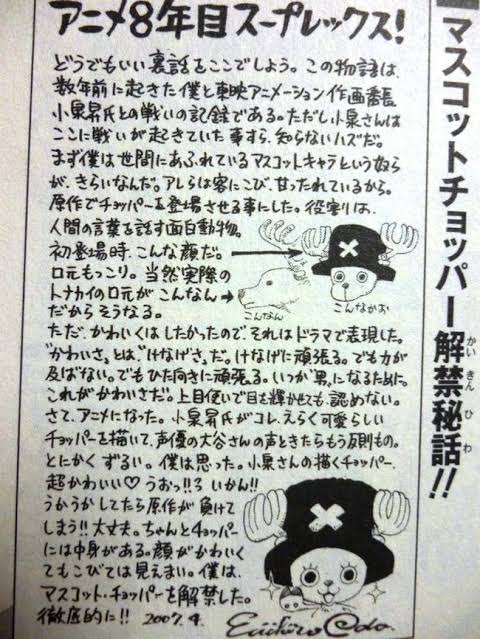 マスコットチョッパー解禁秘話!!
かいきんひわ
アニメ8年目スープレックス!
どうでもいい裏話をここでしよう。この物語は、
数年前に起きた僕と東映アニメーション作画番長
小泉昇氏との戦いの記録である。ただし小泉さんは
ここに戦いが起きていた事すら、知らないハズだ。
まず僕は世間にあふれているマスコットキャラという奴ら
が、きらいなんだ。アレらは客にこび、甘ったれているから。
原作でチョッパーを登場させる事にした。役割りは、
人間の言葉を話す面白動物。
初登場時、こんな顔だ。
口元もっこり。当然実際の
トナカイの口元がこんなん→
だからそうなる。
こんなん
こんなかお
ただ、かわいくはしたかったので、それはドラマで表現した。
"かわいさ"とは"けなげさ"だ。けなげに頑張る。でも力が
及ばない。でもひた向きに頑張る。いつか"男"になるために。
これがかわいさだ。上目使いで目を輝かせても、認めない。
さて、アニメになった。小泉昇氏がコレ、えらく可愛らしい
チョッパーを描いて、声優の大谷さんの声ときたらもう反則もの。
とにかくずるい。僕は思った。小泉さんの描くチョッパー、
超かわいい♡うおっ!!いかん!!
うかうかしてたら原作が負けて
しまう!!大丈夫。ちゃんとチョッパー
には中身がある。顔がかわいく
てもこびては見えまい。僕は、
マスコット・チョッパーを解禁した。
徹底的に!! 2007.4.
Eiichiro Oda